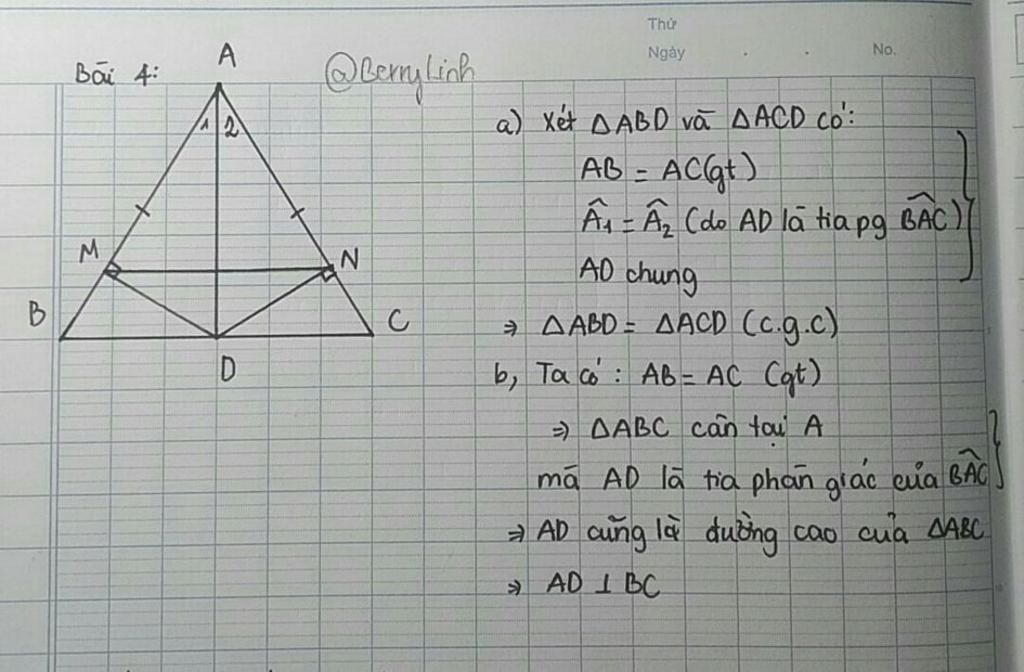 Thứ
Ngày . . No.
Bài 4:
@BerryLinh
A
1 2
M
N
B
C
D
a) Xét ΔABD và ΔACD có:
AB = AC (gt)
Â₁ = Â₂ (do AD là tia pg BÂC)
AD chung
⇒ ΔABD = ΔACD (c.g.c)
b, Ta có: AB = AC (gt)
⇒ ΔABC cân tại A
mà AD là tia phân giác của BÂC
⇒ AD cũng là đường cao của ΔABC
⇒ AD ⊥ BC